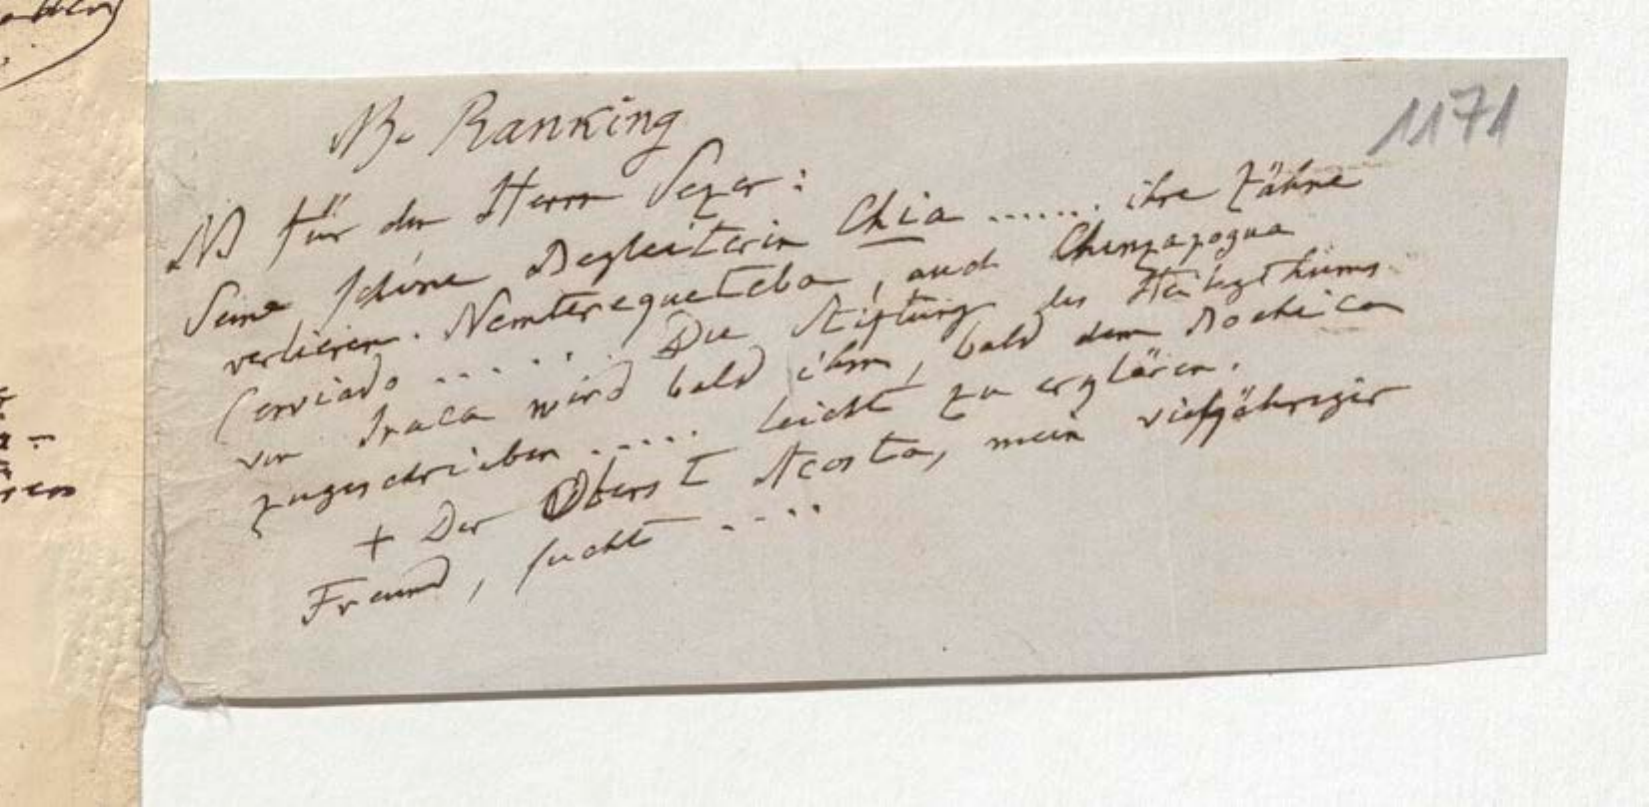 1171
Mr Ranking
NB für den Herrn Sezer:
Seine schöne Begleiterin Chia ....... ihre Zähne
verlieren. Nemterequeteba, auch Chinzapogua
(enviado ...... Die Stiftung des
von Iraca wird bald ihm, bald dem Bochica
zugeschrieben ..... leicht zu erglären.
+ Der Oberst Acosta, mein vieljähriger
Freund, sucht ....